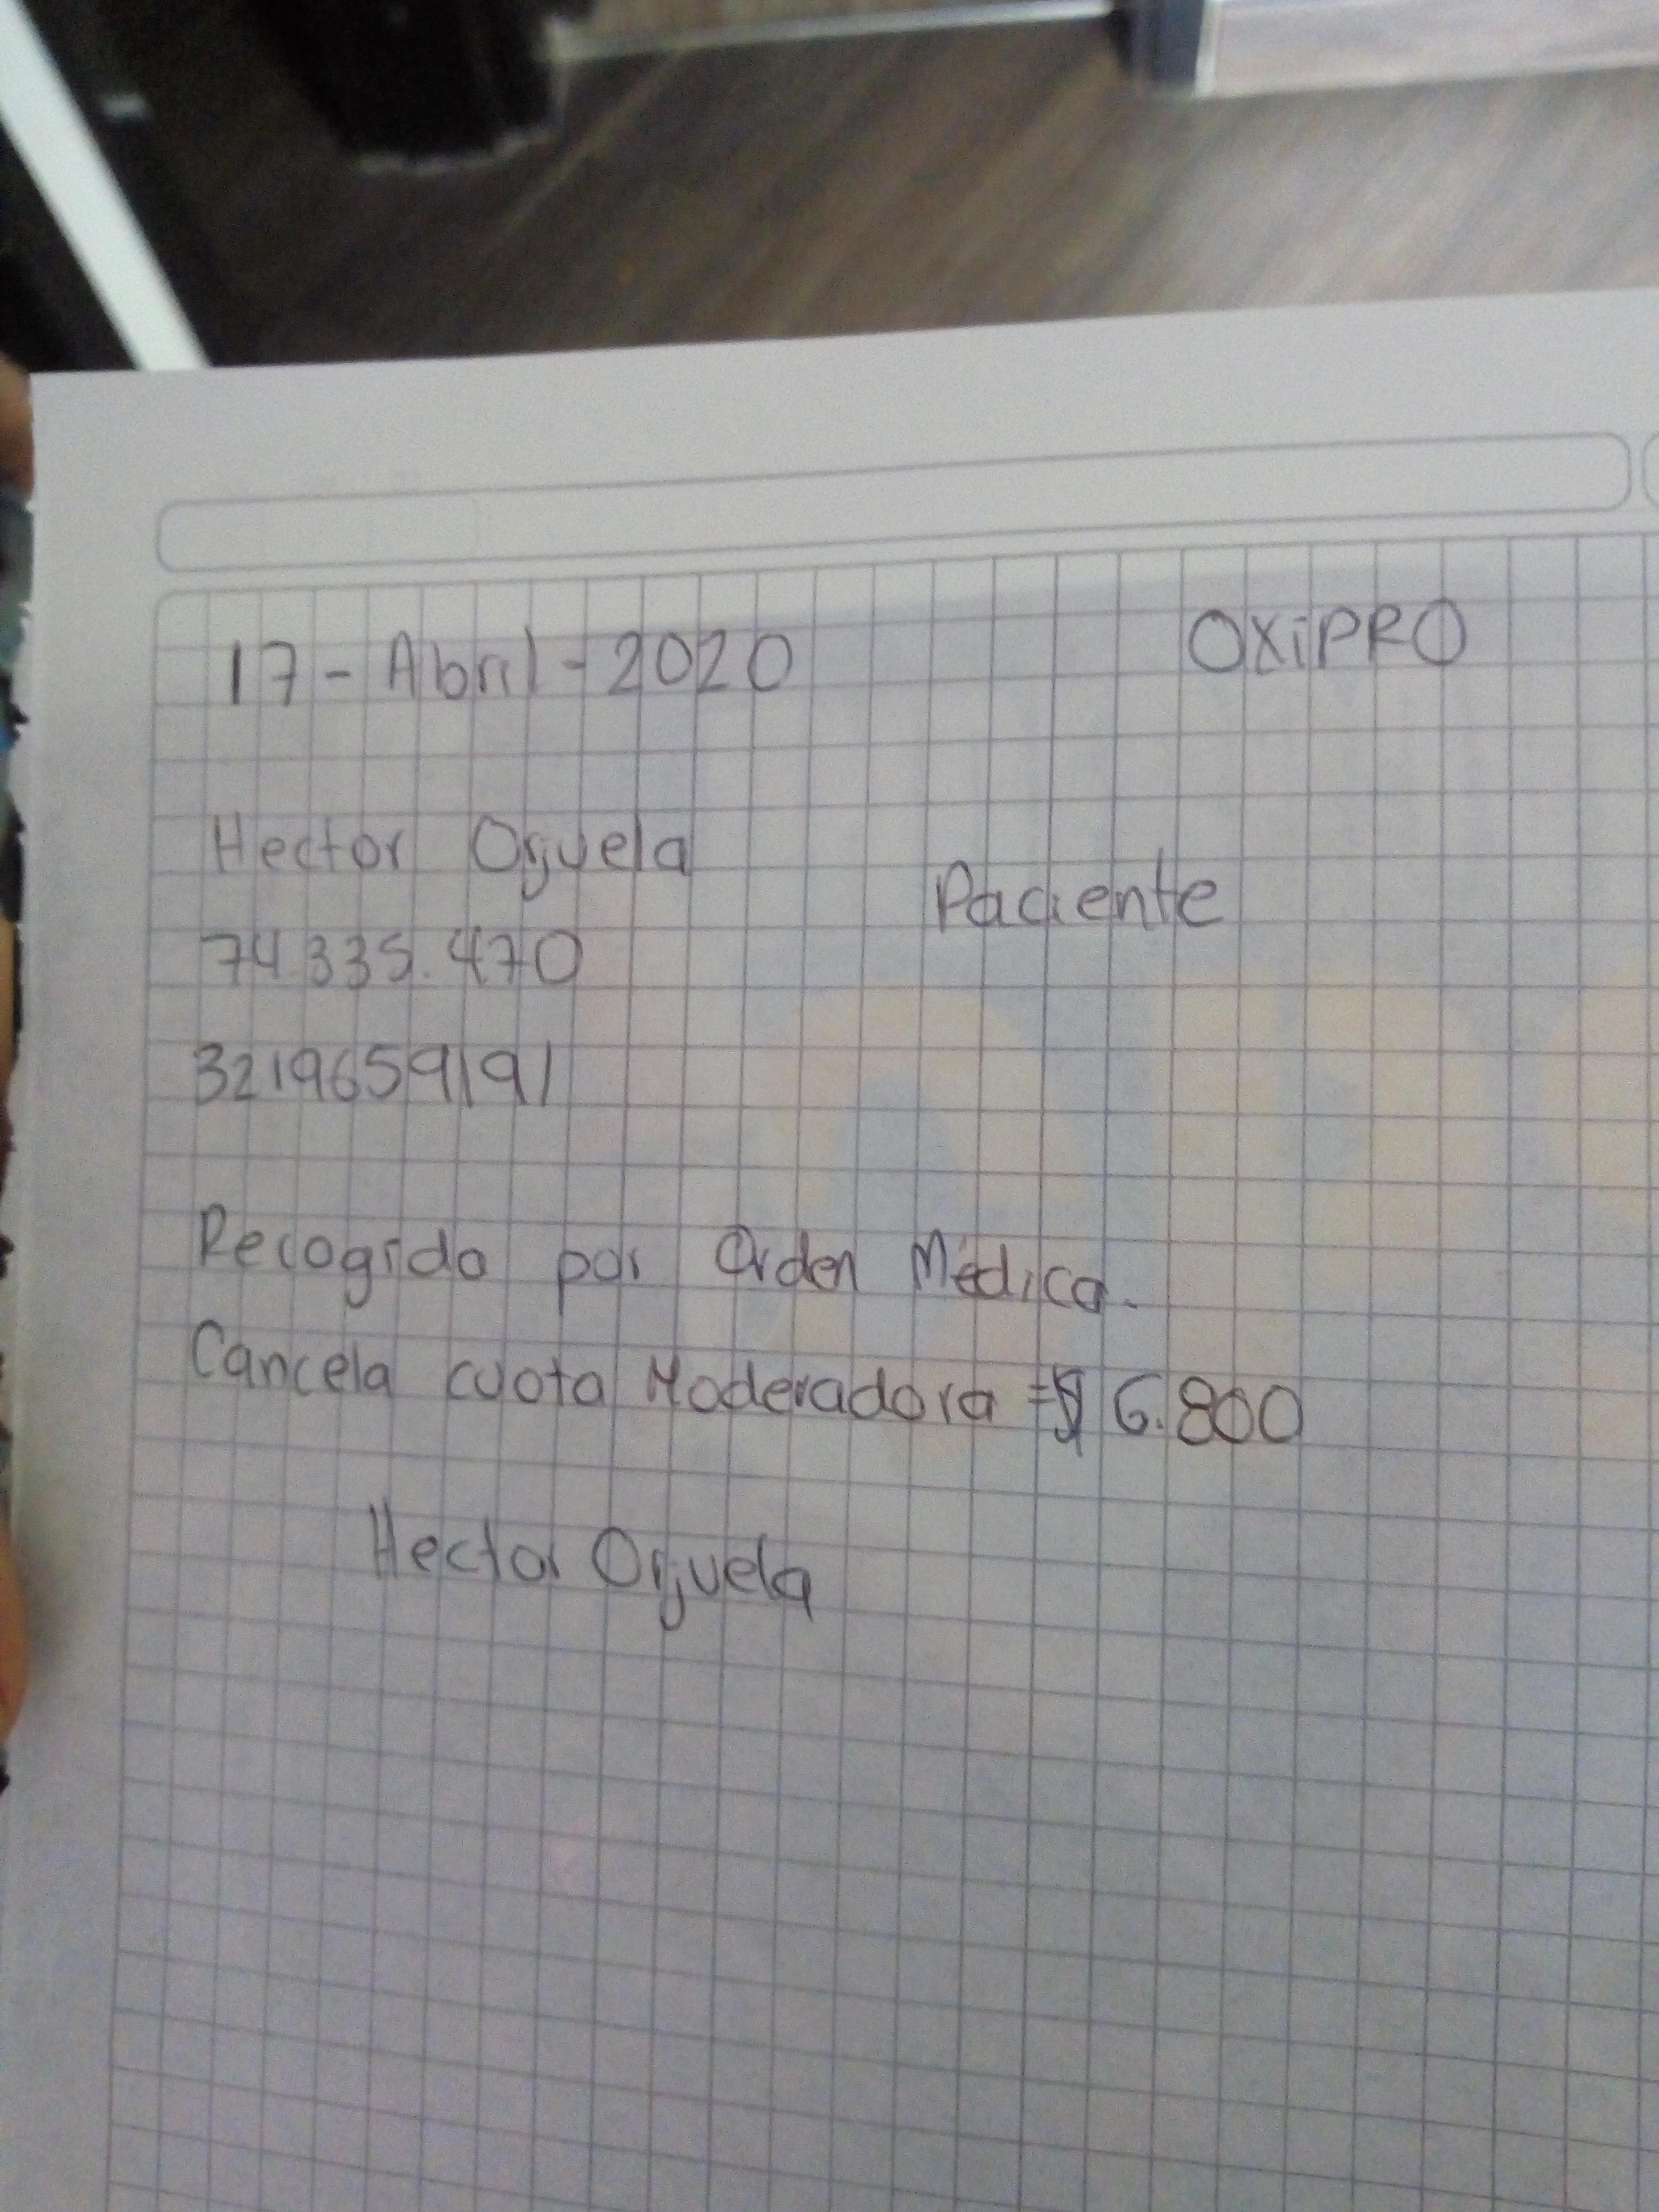 17-Abril-2020 OXiPRO
Hector Orjuela
Paciente
74.335.470
3219659191
Recogido por Orden Médica.
Cancela cuota Moderadora =$ 6.800
Hector Orjuela